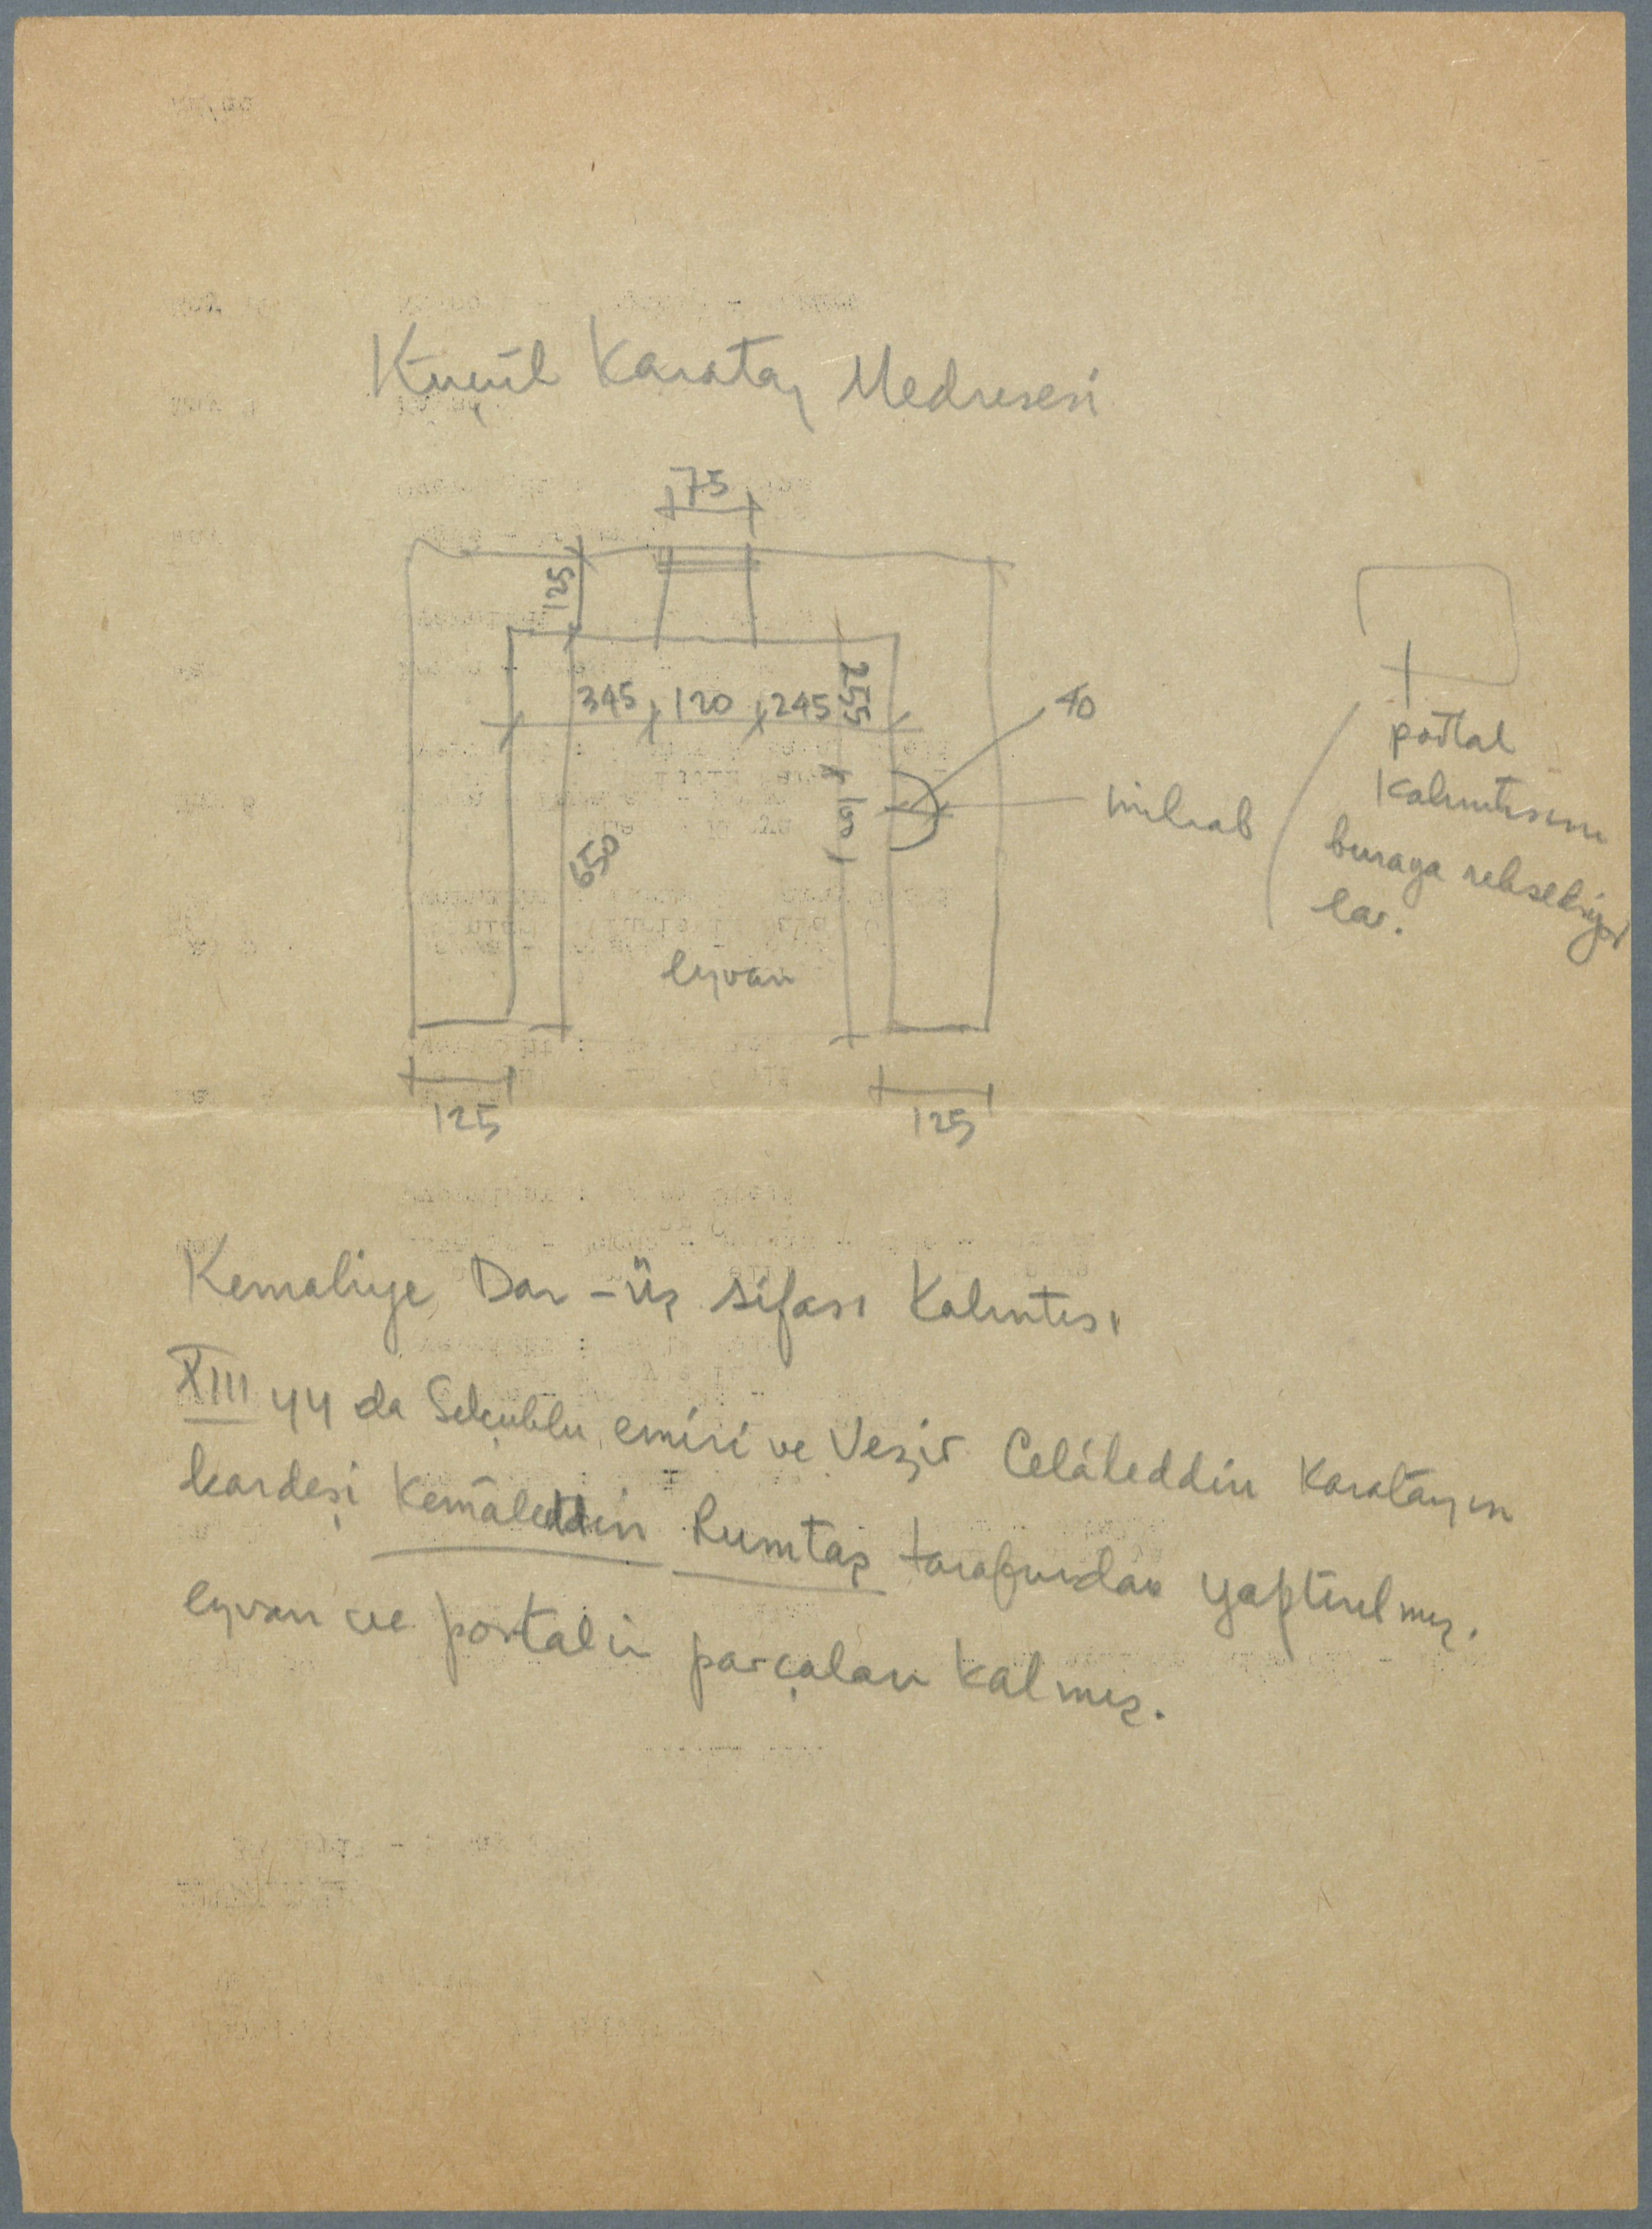 Küçük Karatay Medresesi
75
125
345 120 245 255
40
650
mihrab
portal
kalıntısını
buraya
lar.
eyvan
125 125
Kemaliye Dar-üş şifası Kalıntısı
XIII yy da Selçuklu emiri ve Vezir Celâleddin Karatayın
kardeşi Kemâleddin Rumtaş tarafından yaptırılmış.
eyvan ve portalin parçaları kalmış.